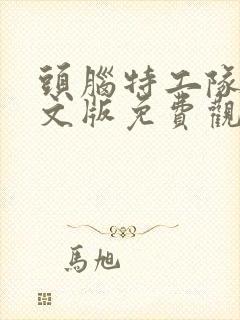 頭腦特工隊
文版免費觀
馬旭